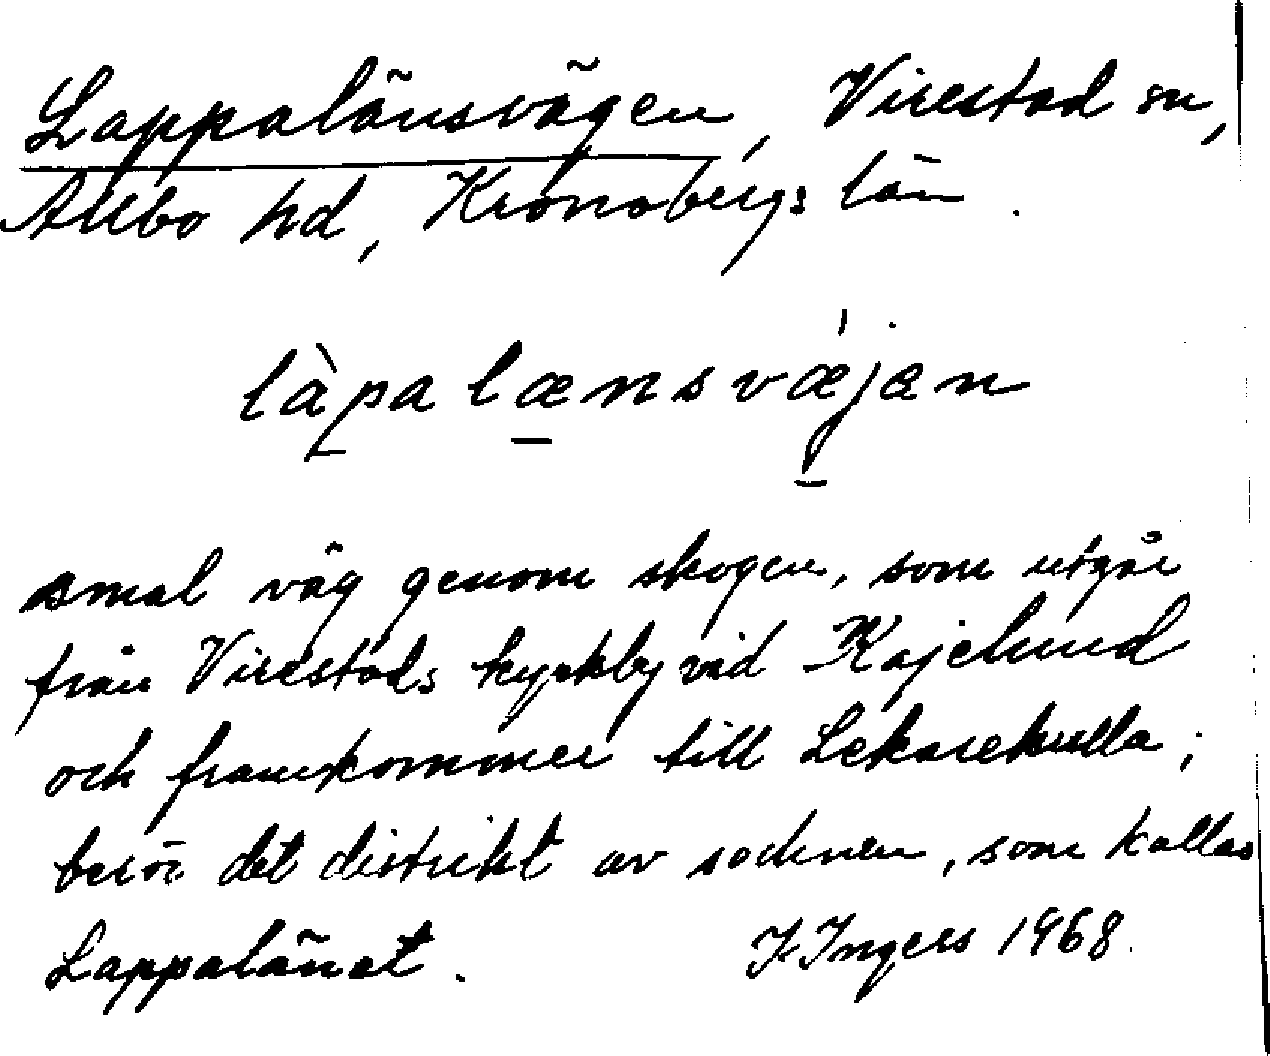 Lappalänsvägen, Virestad sn,
Allbo hd, Kronobergs län.
làpalænsvæ̀jen
smal väg genom skogen, som utgår
från Virestads kyrkby vid Kajelund
och framkommer till Lekarekulla;
berör det distrikt av socknen, som kallas
Lappalänet.
I Ingers 1968.